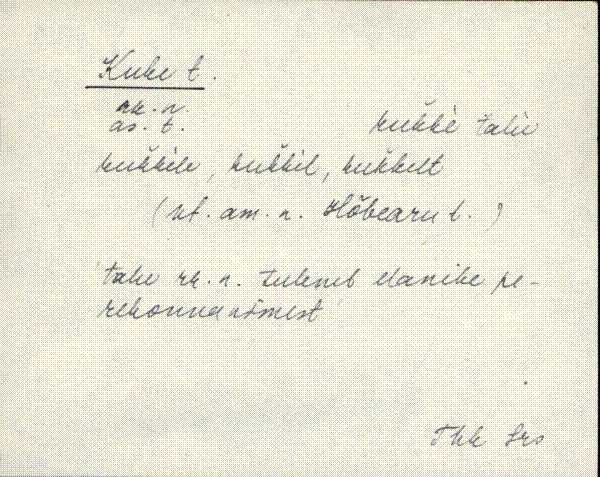 Kuke t.
rk. n.
as. t. kuk̆kè talu
kuk̆kile, kuk̆kil, kuk̆kelt
(vt. am. n. Hõbearu t.)
talu rk. n. tuleneb elanike pe-
rekonnanimest
Tkk